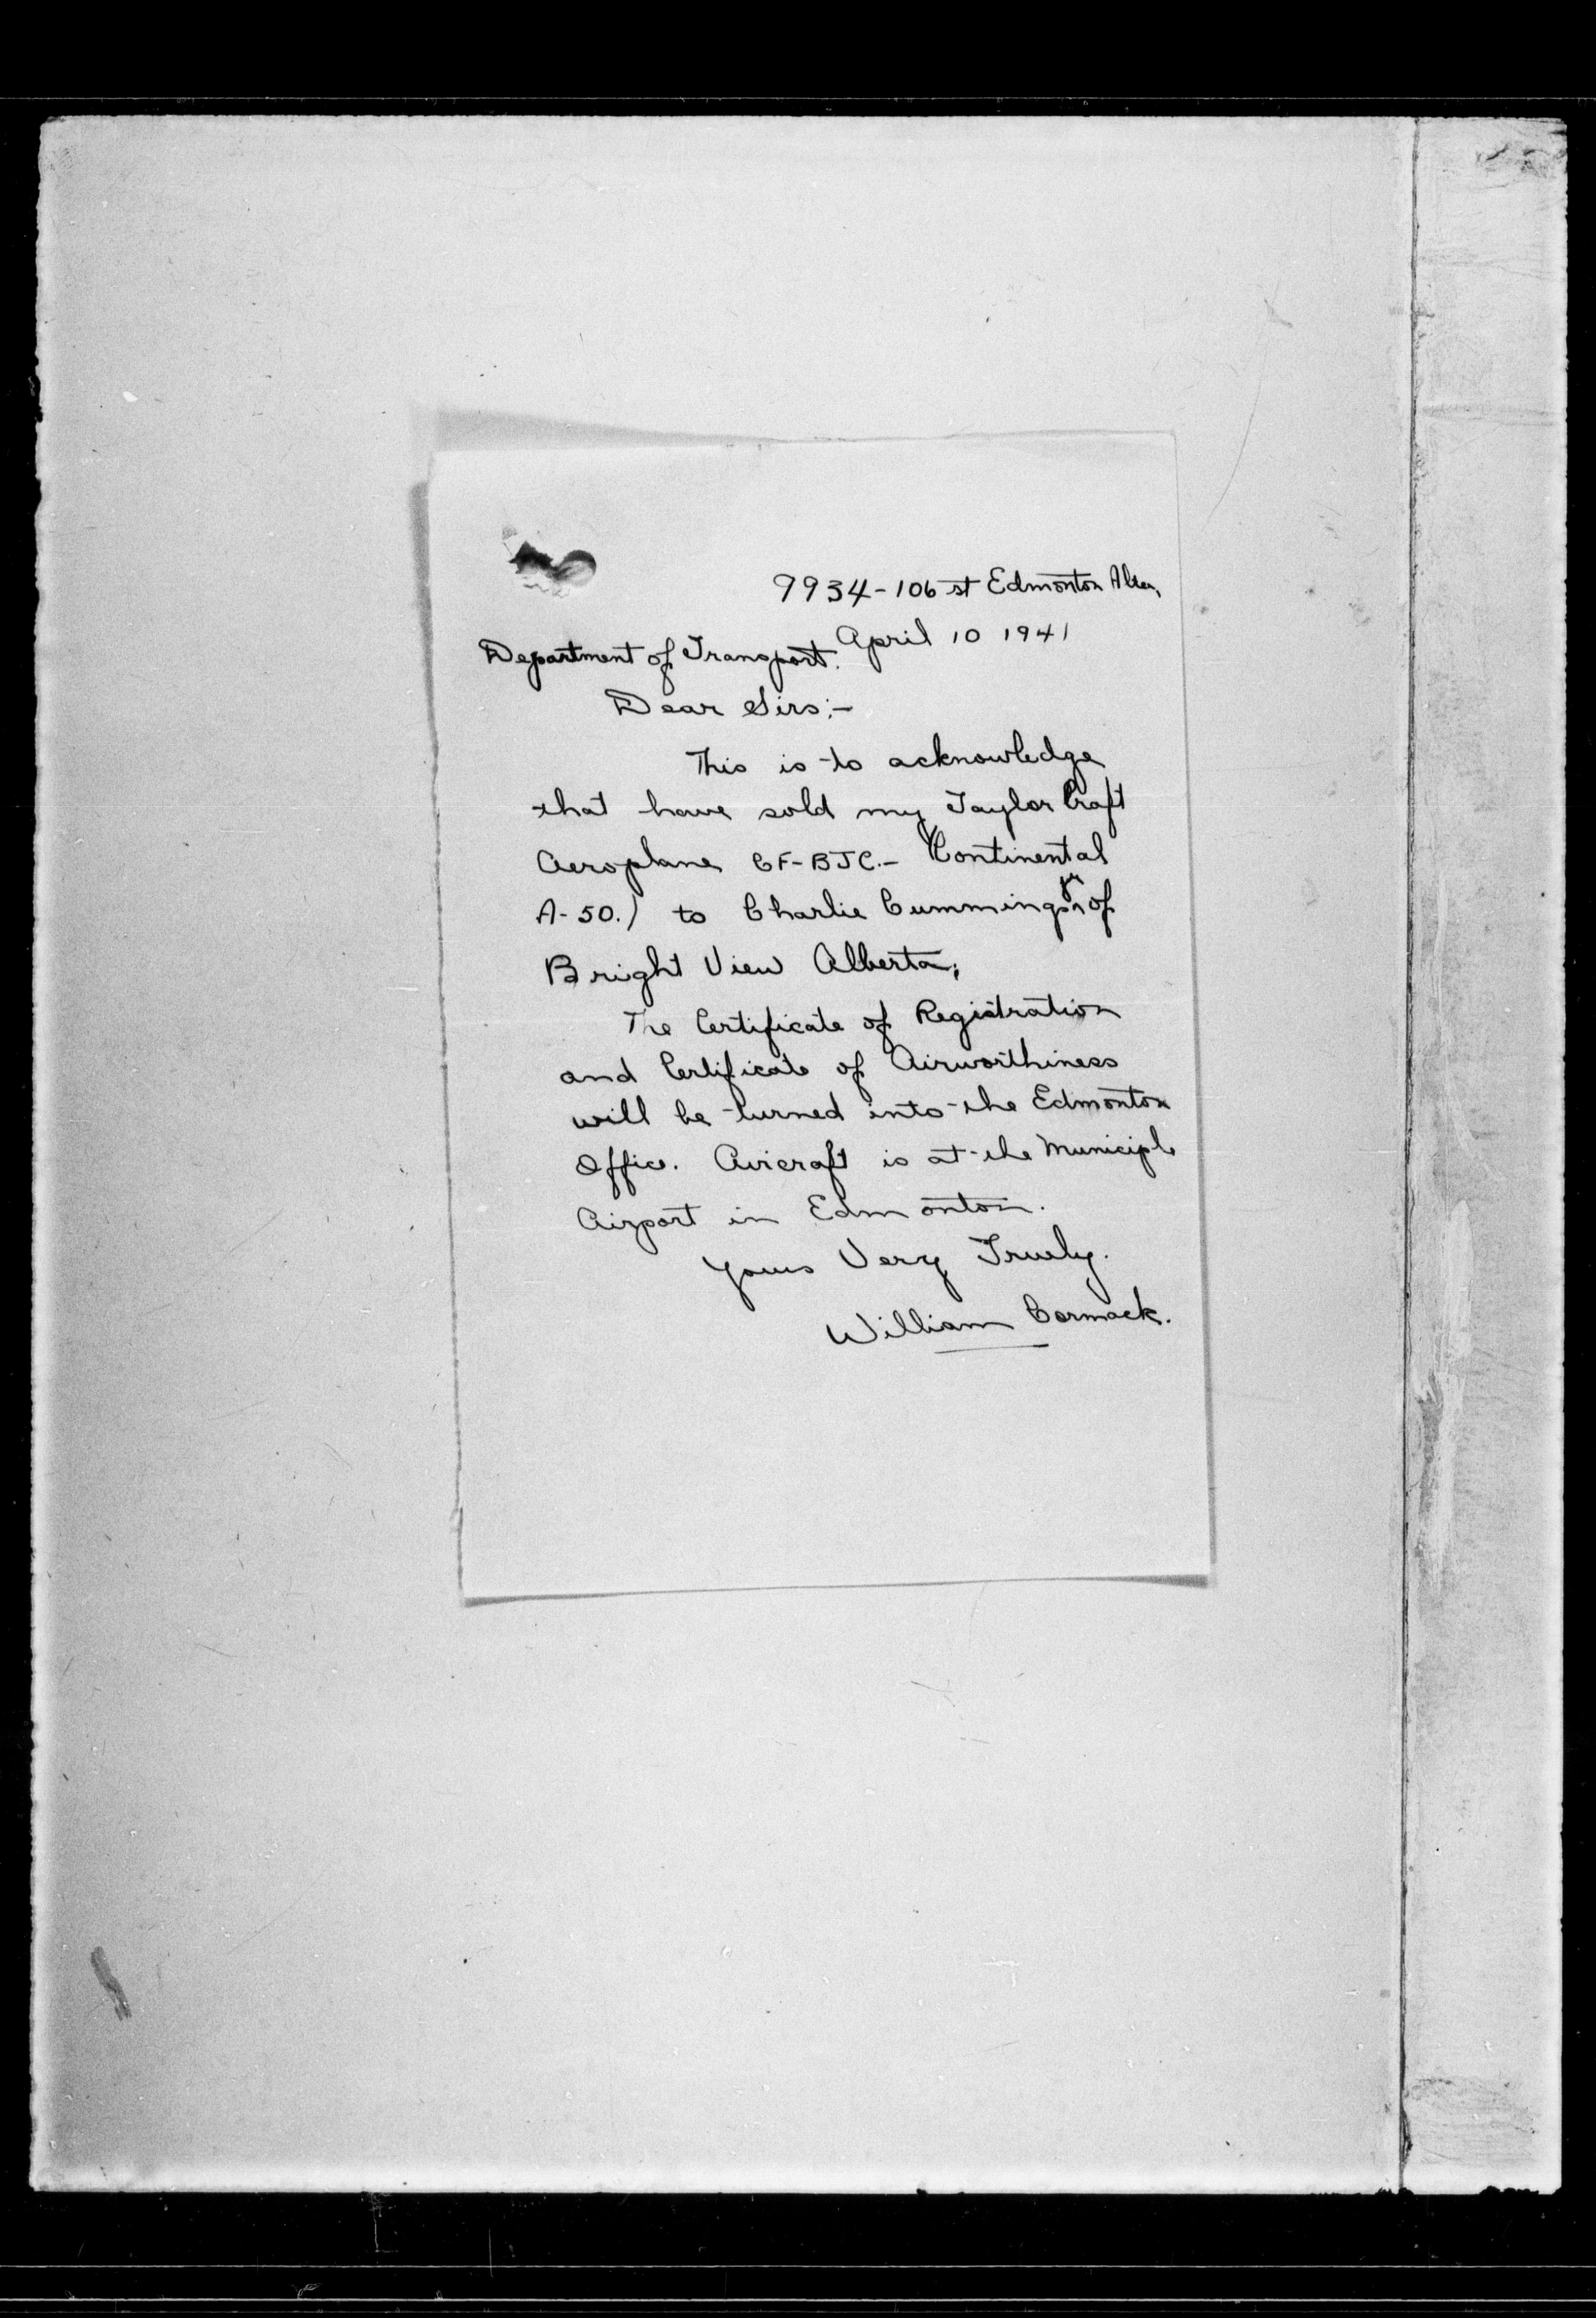 9934-106 st Edmonton Alta,
April 10 1941
Department of Transport.
Dear Sirs:-
This is to acknowledge
that have sold my Taylor Craft
Aeroplane CF-BJC.- (Continental
A-50.) to Charlie Cummings of
Bright View Alberta,
The Certificate of Registration
and Certificate of Airworthiness
will be turned into the Edmonton
Office. Aircraft is at the Municiple
Airport in Edmonton.
Yours Very Truely.
William Cormack.